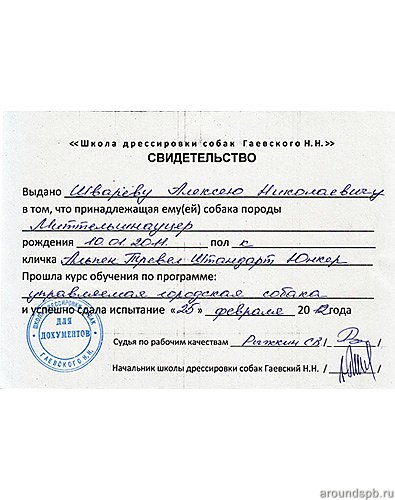 «Школа дрессировки собак Гаевского Н.Н.»
СВИДЕТЕЛЬСТВО
Выдано Швареву Алексею Николаевичу
в том, что принадлежащая ему(ей) собака породы
Миттельшнауцер
рождения 10.01.2011. пол к
кличка Альпен Тревел Штандарт Юнкер
Прошла курс обучения по программе:
управляемая городская собака
и успешно сдала испытание «25» февраля 2012года
ШКОЛА ДРЕССИРОВКИ СОБАК
ДЛЯ
ДОКУМЕНТОВ
ГАЕВСКОГО Н.Н.
Судья по рабочим качествам Рыжкин СВ / /
Начальник школы дрессировки собак Гаевский Н.Н. / /
aroundspb.ru